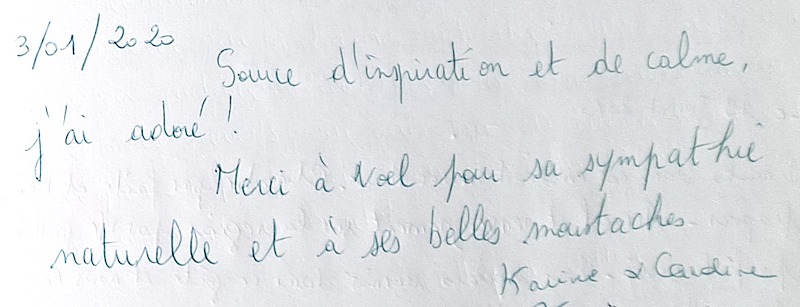 3/01/2020
Source d'inspiration et de calme,
j'ai adoré !
Merci à Noel pour sa sympathie
naturelle et à ses belles moustaches.
Karine &